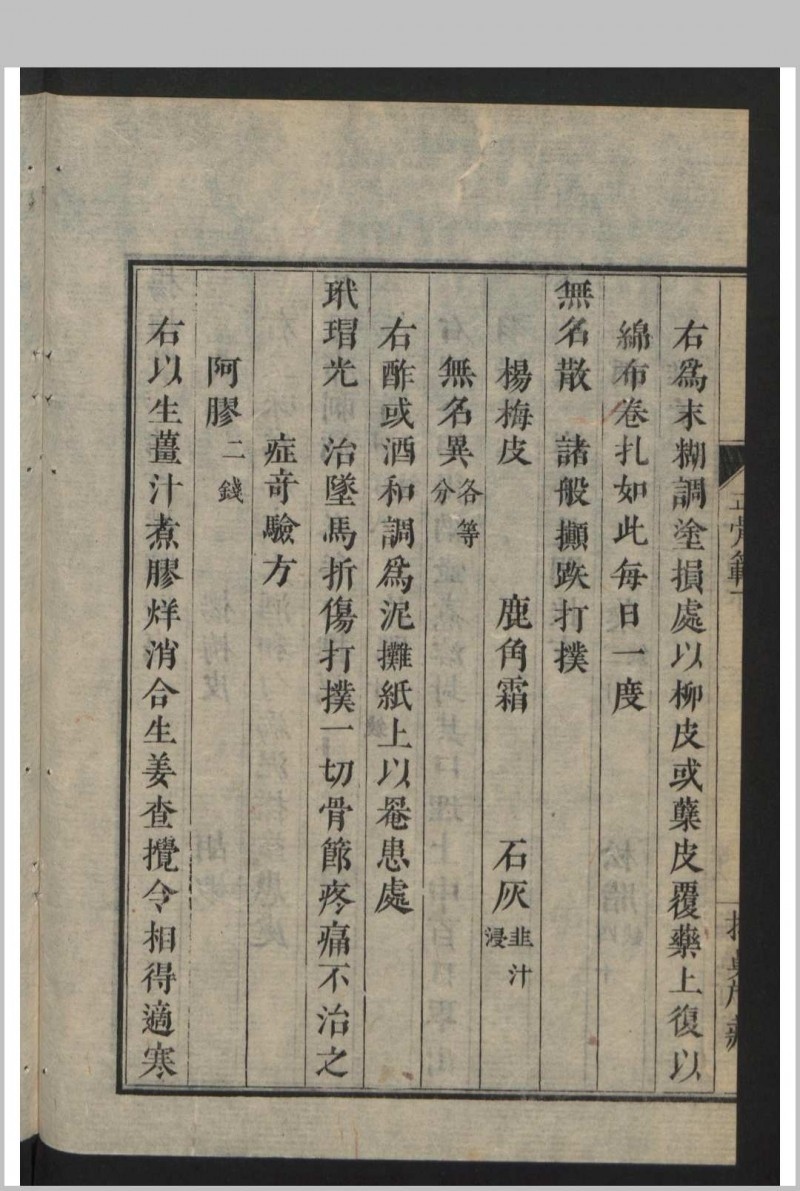 正骨範下
右爲末糊調塗損處以柳皮或蘗皮覆藥上復以
綿布卷扎如此每日一度
無名散　諸般攧跌打撲
楊梅皮　鹿角霜　石灰韭汁浸
無名異各等分
右酢或酒和調爲泥攤紙上以罨患處
玳瑁光　治墜馬折傷打撲一切骨節疼痛不治之
症奇驗方
阿膠二錢
右以生薑汁煮膠烊消合生姜查攪令相得適寒